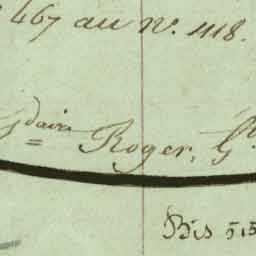 467 au N.° 418.
G.daire Roger, G.
Bis 515